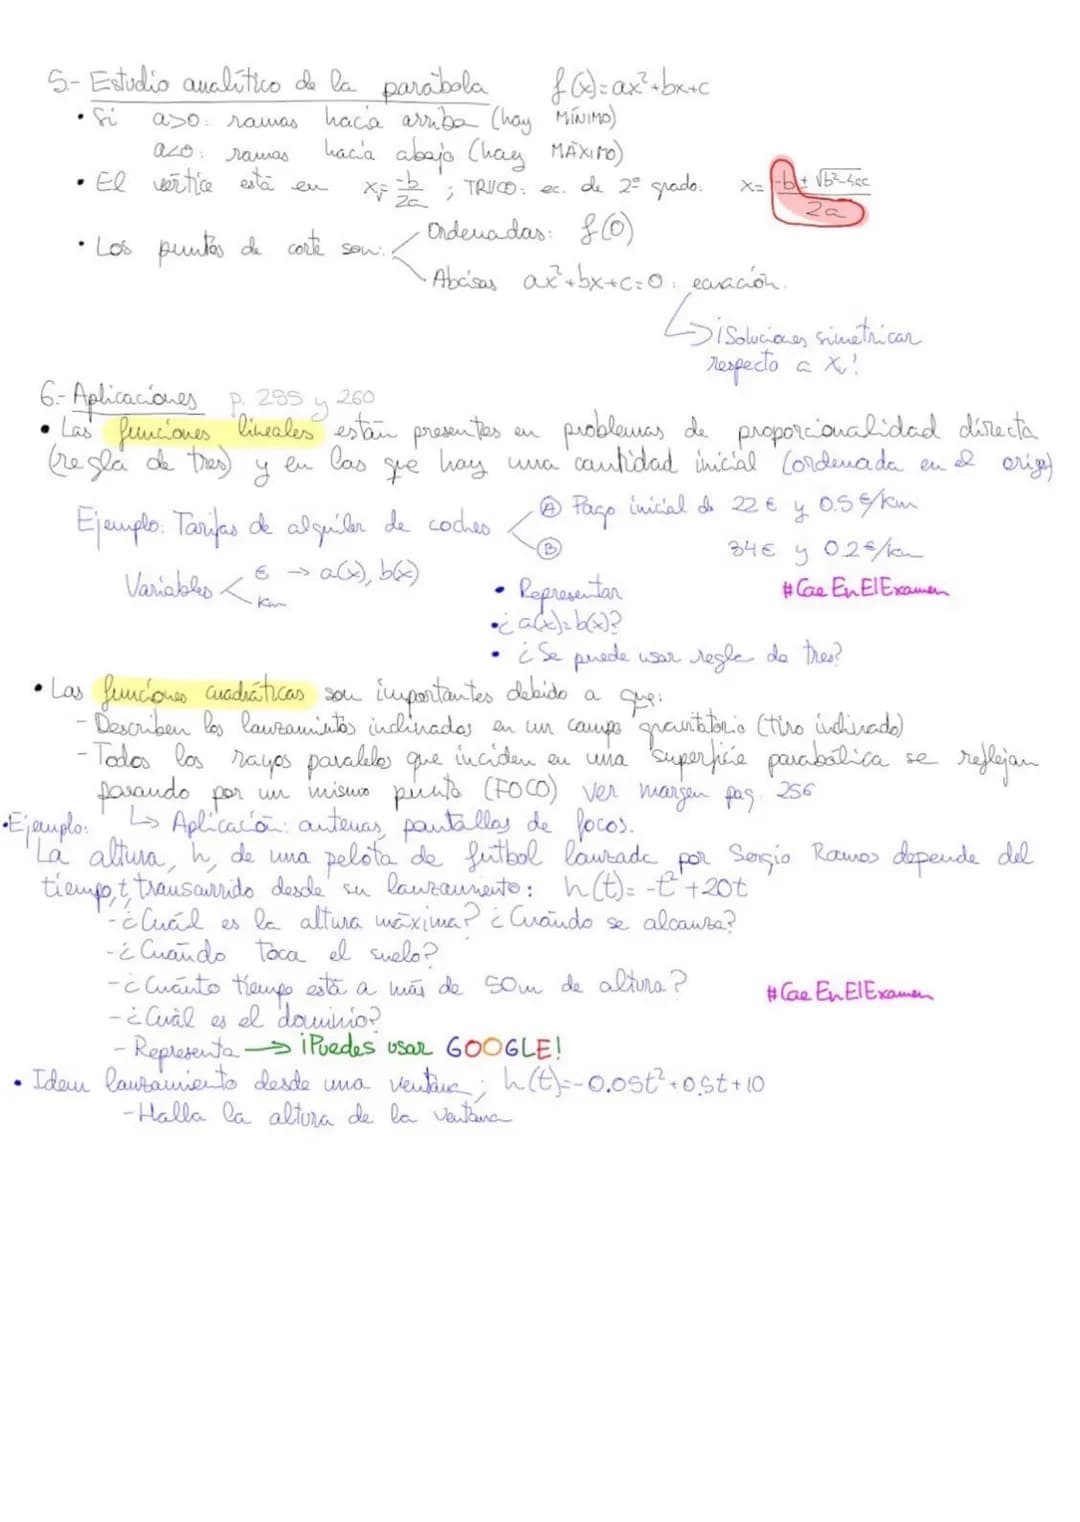 5.- Estudio analítico de la parábola f(x)=ax²+bx+c
• Si a>0: ramas hacia arriba (hay MÍNIMO)
a<0: ramas hacia abajo (hay MÁXIMO)
• El vértice está en xᵥ=-b/2a ; TRUCO: ec. de 2º grado. x= -b±√b²-4ac / 2a
• Los puntos de corte son: Ordenadas: f(0)
Abcisas ax²+bx+c=0: ecuación.
¡Soluciones simétricas
respecto a xᵥ!
6.- Aplicaciones p. 255 y 260
• Las funciones lineales están presentes en problemas de proporcionalidad directa
(regla de tres) y en las que hay una cantidad inicial (ordenada en el origen)
Ejemplo: Tarifas de alquiler de coches Ⓐ Pago inicial de 22 € y 0.5 €/km
Ⓑ 34€ y 0.2€/km
Variables € → a(x), b(x)
km
• Representar #CaeEnElExamen
• ¿a(x)=b(x)?
• ¿Se puede usar regla de tres?
• Las funciones cuadráticas son importantes debido a que:
- Describen los lanzamientos inclinados en un campo gravitatorio (tiro inclinado)
- Todos los rayos paralelos que inciden en una superficie parabólica se reflejan
pasando por un mismo punto (FOCO) ver margen pag. 256
↳ Aplicación: antenas, pantallas de focos.
• Ejemplo:
La altura, h, de una pelota de fútbol lanzada por Sergio Ramos depende del
tiempo, t, transcurrido desde su lanzamiento: h(t)= -t²+20t
- ¿Cuál es la altura máxima? ¿Cuándo se alcanza?
- ¿Cuándo toca el suelo?
- ¿Cuánto tiempo está a más de 50m de altura? #CaeEnElExamen
- ¿Cuál es el dominio?
- Representa → ¡Puedes usar GOOGLE!
• Idem lanzamiento desde una ventana; h(t)=-0.05t²+0,5t+10
- Halla la altura de la ventana